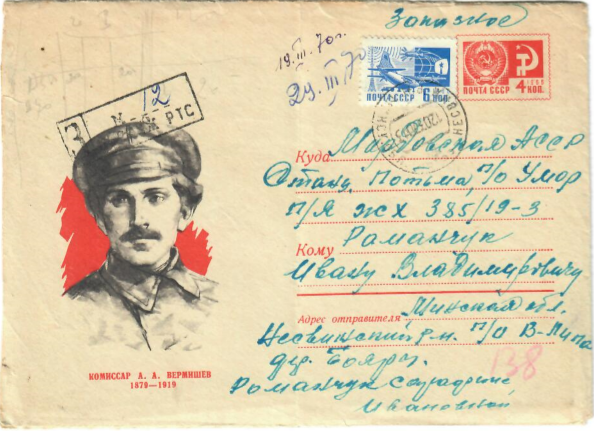 Заказное
19.III.70г.
29.III 70
ПОЧТА СССР 6 КОП.
ПОЧТА СССР 4 КОП.
12
З РТС
Куда Мордовская АССР
Станц. Потьма, п/о Умор
п/я жх 385/19-3
Кому Романчук
Ивану Владимировичу
Адрес отправителя Минская обл.
Несвижский р-н. п/о В-Липа
дер. Бояры.
Романчук
Ивановной
138
КОМИССАР А. А. ВЕРМИШЕВ
1879—1919